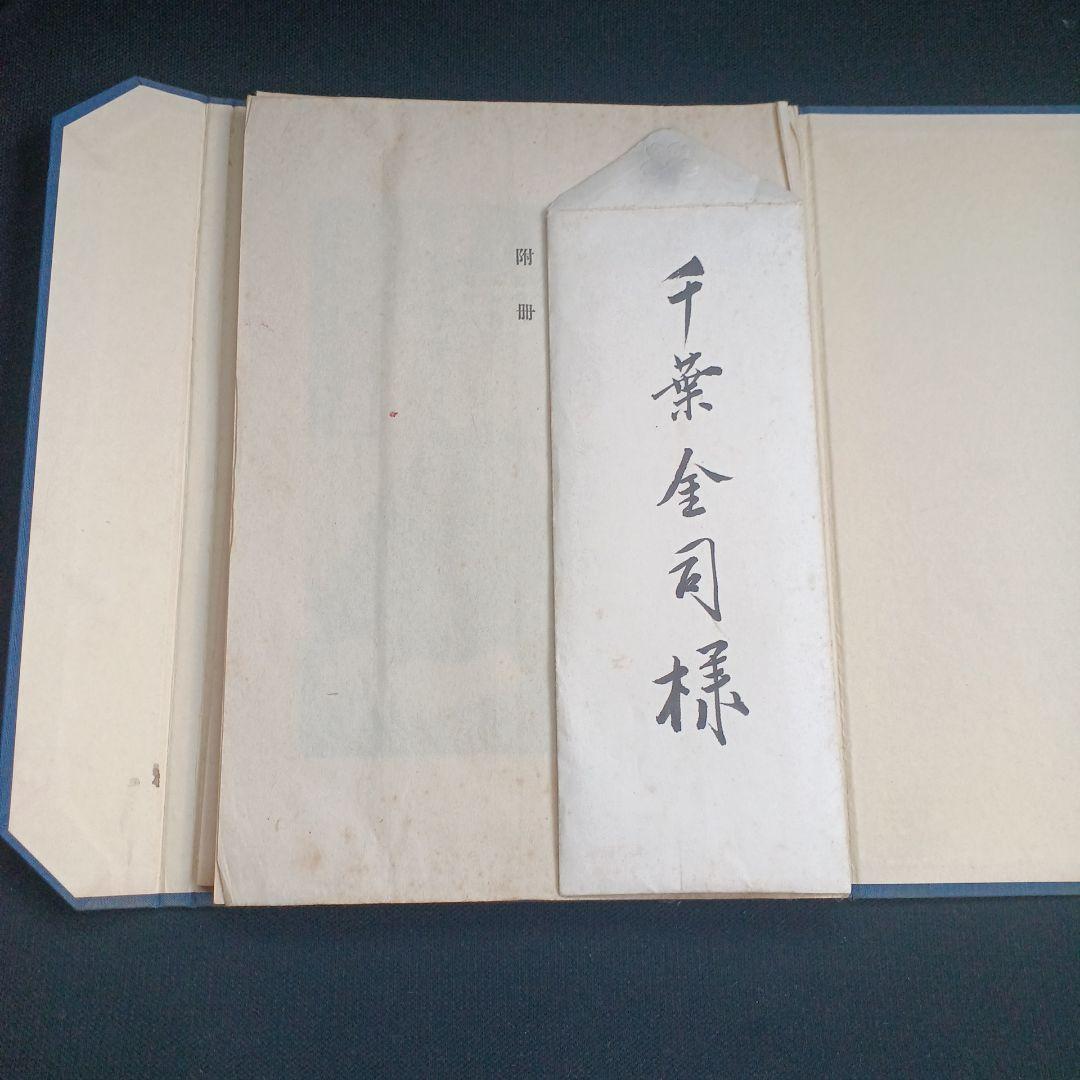 千葉金司様
附冊